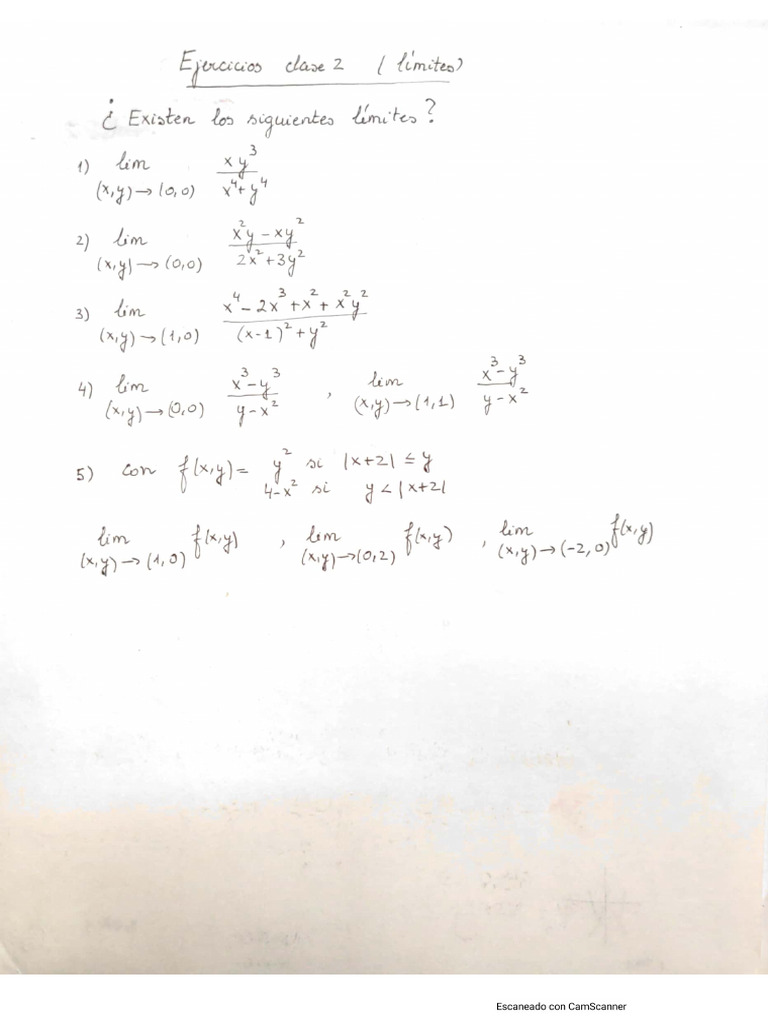 Ejercicios clase 2 (límites)
¿Existen los siguientes límites?
1) lim (x,y)→(0,0) xy³/(x⁴+y⁴)
2) lim (x,y)→(0,0) (x²y-xy²)/(2x²+3y²)
3) lim (x,y)→(1,0) (x⁴-2x³+x²+x²y²)/((x-1)²+y²)
4) lim (x,y)→(0,0) (x³-y³)/(y-x²) , lim (x,y)→(1,1) (x³-y³)/(y-x²)
5) con f(x,y)= y² si |x+2| ≤ y
4-x² si y<|x+2|
lim (x,y)→(1,0) f(x,y) , lim (x,y)→(0,2) f(x,y) , lim (x,y)→(-2,0) f(x,y)
Escaneado con CamScanner